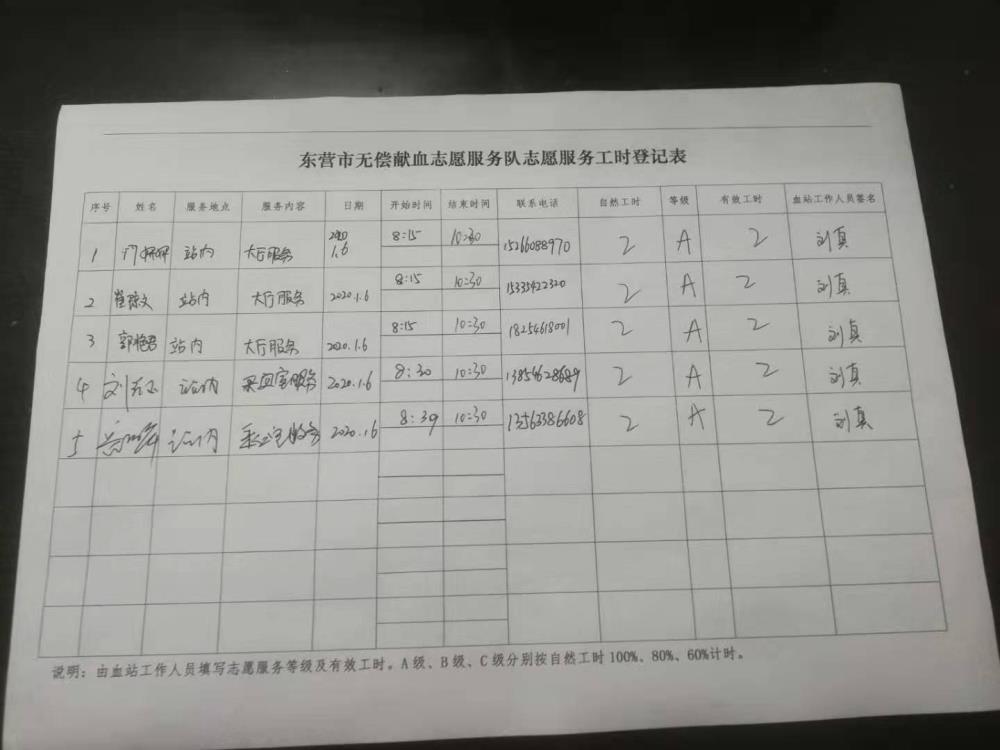 东营市无偿献血志愿服务队志愿服务工时登记表
序号 姓名 服务地点 服务内容 日期 开始时间 结束时间 联系电话 自然工时 等级 有效工时 血站工作人员签名
1 站内 大厅服务 2020 1.6 8:15 10:30 15266088970 2 A 2 刘真
2 崔琼文 站内 大厅服务 2020.1.6 8:15 10:30 15335422320 2 A 2 刘真
3 站内 大厅服务 2020.1.6 8:15 10:30 18254618001 2 A 2 刘真
4 站内 采血室服务 2020.1.6 8:30 10:30 13854628689 2 A 2 刘真
5 站内 2020.1.6 8:30 10:30 13563386608 2 A 2 刘真
说明：由血站工作人员填写志愿服务等级及有效工时。A级、B级、C级分别按自然工时100%、80%、60%计时。